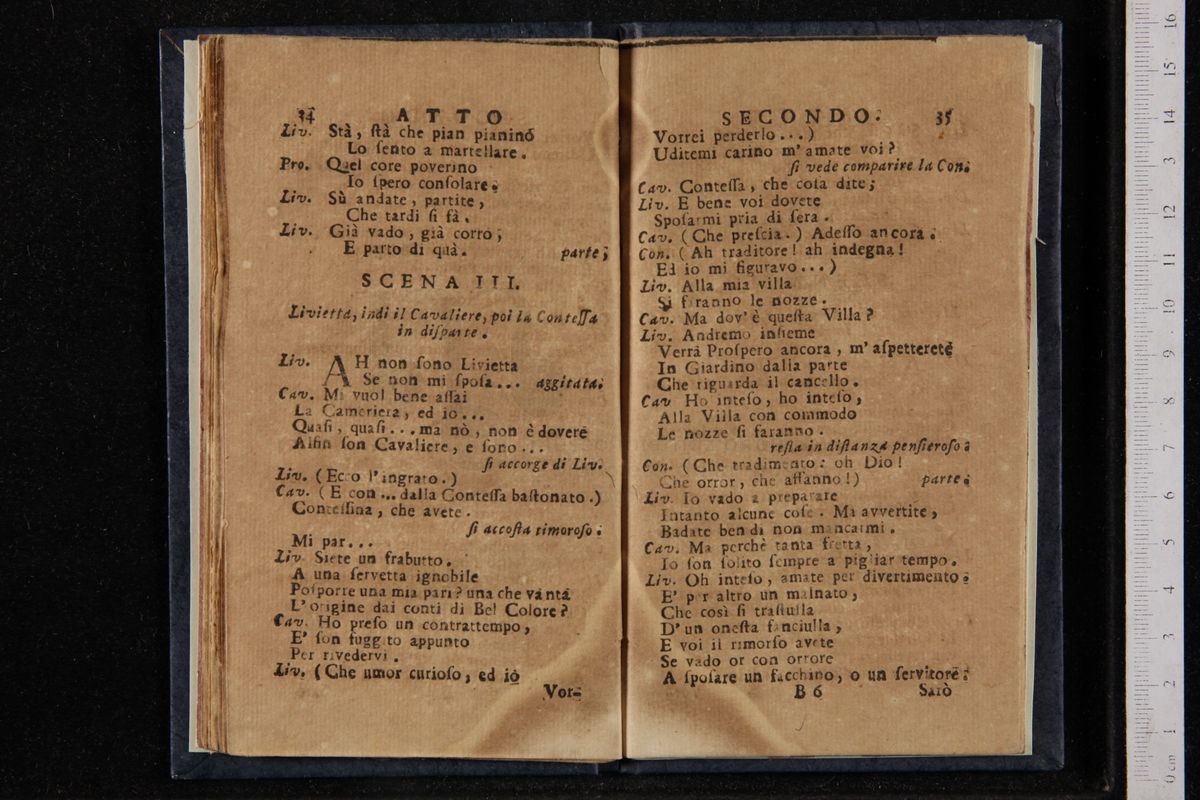 34 ATTO
Liv. Stà, ſtà che pian pianinó
Lo ſento a martellare.
Pro. Quel core poverino
Io ſpero conſolare.
Liv. Sù andate, partite,
Che tardi ſi fà.
Liv. Già vado, già corro;
E parto di quà. parte;
SCENA III.
Livietta, indi il Cavaliere, poi la Conteſſa
in diſparte.
Liv. AH non ſono Livietta
Se non mi ſpoſa... aggitata.
Cav. Mi vuol bene aſſai
La Cameriera, ed io...
Quaſi, quaſi... ma nò, non è dovere
Alfin ſon Cavaliere, e ſono...
ſi accorge di Liv.
Liv. (Ecco l'ingrato.)
Cav. (E con... dalla Conteſſa baſtonato.)
Conteſſina, che avete.
ſi accoſta timoroſo:
Mi par...
Liv. Siete un frabutto.
A una ſervetta ignobile
Poſporre una mia pari? una che vanta
L'origine dai conti di Bel Colore?
Cav. Ho preſo un contrattempo,
E' ſon fuggito appunto
Per rivedervi.
Liv. (Che umor curioſo, ed io
Vor-
SECONDO. 35
Vorrei perderlo...)
Uditemi carino m'amate voi?
ſi vede comparire la Con.
Cav. Conteſſa, che coſa dite;
Liv. E bene voi dovete
Spoſarmi pria di ſera.
Cav. (Che preſcia.) Adeſſo ancora.
Con. (Ah traditore! ah indegna!
Ed io mi figuravo...)
Liv. Alla mia villa
Si faranno le nozze.
Cav. Ma dov'è queſta Villa?
Liv. Andremo inſieme
Verrà Proſpero ancora, m'aſpetterete
In Giardino dalla parte
Che riguarda il cancello.
Cav Ho inteſo, ho inteſo,
Alla Villa con commodo
Le nozze ſi faranno.
reſta in diſtanza penſieroſo.
Con. (Che tradimento: oh Dio!
Che orror, che affanno!) parte.
Liv. Io vado a preparare
Intanto alcune coſe. Mi avvertite,
Badate ben di non mancarmi.
Cav. Ma perchè tanta fretta,
Io ſon ſolito ſempre a pigliar tempo.
Liv. Oh inteſo, amate per divertimento:
E' per altro un malnato,
Che così ſi traſtulla
D'un oneſta fanciulla,
E voi il rimorſo avete
Se vado or con orrore
A ſpoſare un facchino, o un ſervitore:
B 6 Sarò
0 cm 1 2 3 4 5 6 7 8 9 10 11 12 13 14 15 16